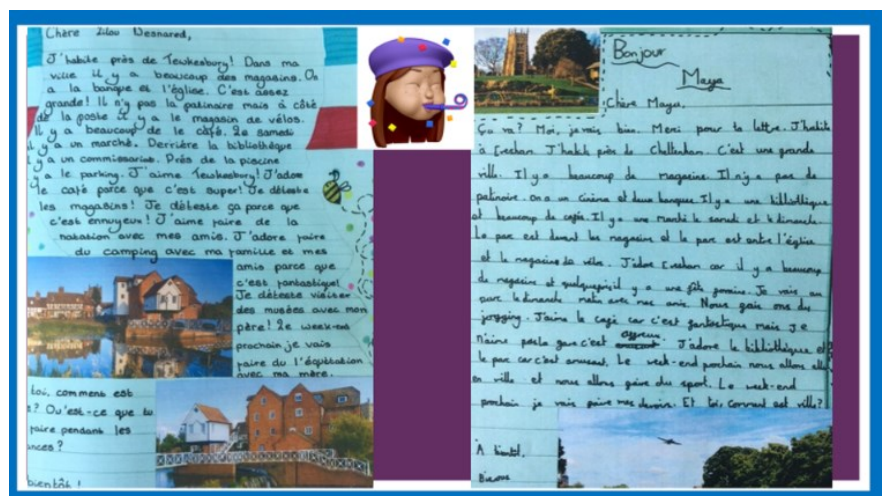 Chère Lilou Desnared,
J'habite près de Tewkesbury! Dans ma
ville il y a beaucoup des magasins. On
a la banque et l'église. C'est assez
grande! Il n'y pas la patinoire mais à côté
de la poste il y a le magasin de vélos.
Il y a beaucoup de le café. Le samedi
il y a un marché. Derrière la bibliothèque
il y a un commissariat. Près de la piscine
y a le parking. J'aime Tewkesbury! J'adore
le café parce que c'est super! Je déteste
les magasins! Je déteste ça parce que
c'est ennuyeux! J'aime faire de la
natation avec mes amis. J'adore faire
du camping avec ma famille et mes
amis parce que
c'est fantastique!
Je déteste visiter
des musées avec mon
père! Le week-end
prochain je vais
faire du l'équitation
avec ma mère.
toi, comment est
? Qu'est-ce que tu
faire pendant les
nces?
bientôt!
Bonjour
Maya
Chère Maya,
Ça va? Moi, je vais bien. Merci pour la lettre. J'habite
à Evesham. J'habite près de Cheltenham. C'est une grande
ville. Il y a beaucoup de magasins. Il n'y a pas de
patinoire. On a un cinéma et deux banques. Il y a une bibliothèque
et beaucoup de cafés. Il y a une marché le samedi et le dimanche.
Le parc est devant les magasins et le parc est entre l'église
et le magasin de vélos. J'adore Evesham car il y a beaucoup
de magasins et quelquefois il y a une fête foraine. Je vais au
parc le dimanche matin avec mes amis. Nous faisons du
jogging. J'aime le café car c'est fantastique mais je
n'aime pas la gare c'est affreux. J'adore la bibliothèque et
le parc car c'est amusant. Le week-end prochain nous allons
en ville et nous allons faire du sport. Le week-end
prochain je vais faire mes devoirs. Et toi, comment est ville?
À bientôt,